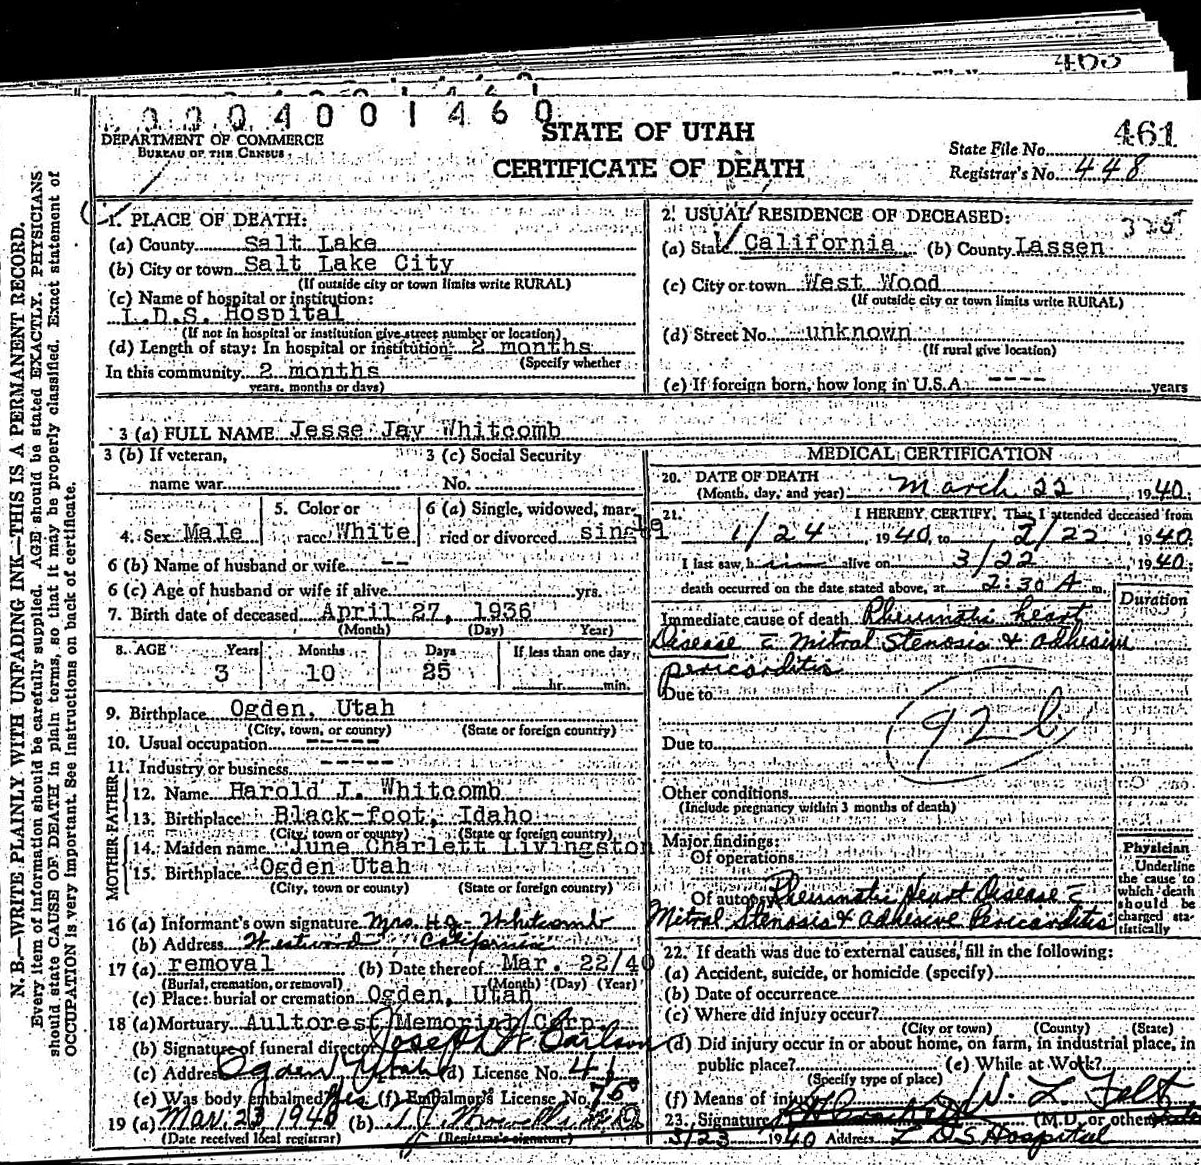 463
0004001460
DEPARTMENT OF COMMERCE
BUREAU OF THE CENSUS
STATE OF UTAH
CERTIFICATE OF DEATH
461
State File No.
Registrar's No. 448
N. B.—WRITE PLAINLY WITH UNFADING INK—THIS IS A PERMANENT RECORD.
Every item of information should be carefully supplied. AGE should be stated EXACTLY. PHYSICIANS
should state CAUSE OF DEATH in plain terms, so that it may be properly classified. Exact statement of
OCCUPATION is very important. See instructions on back of certificate.
1. PLACE OF DEATH:
(a) County Salt Lake
(b) City or town Salt Lake City
(If outside city or town limits write RURAL)
(c) Name of hospital or institution:
L.D.S. Hospital
(If not in hospital or institution give street number or location)
(d) Length of stay: In hospital or institution 2 months
(Specify whether
In this community 2 months
years, months or days)
2. USUAL RESIDENCE OF DECEASED:
(a) State California (b) County Lassen
(c) City or town West Wood
(If outside city or town limits write RURAL)
(d) Street No. unknown
(If rural give location)
(e) If foreign born, how long in U.S.A. ---- years
3 (a) FULL NAME Jesse Jay Whitcomb
3 (b) If veteran,
name war
3 (c) Social Security
No.
4. Sex Male
5. Color or
race White
6 (a) Single, widowed, mar-
ried or divorced single
6 (b) Name of husband or wife --
6 (c) Age of husband or wife if alive yrs.
7. Birth date of deceased April 27, 1936
(Month) (Day) Year)
8. AGE Years Months Days If less than one day
3 10 25 hr. min.
9. Birthplace Ogden, Utah
(City, town, or county) (State or foreign country)
10. Usual occupation -----
11. Industry or business -----
FATHER
12. Name Harold J. Whitcomb
13. Birthplace Black-foot, Idaho
(City, town or county) (State or foreign country)
MOTHER
14. Maiden name June Charlett Livingston
15. Birthplace Ogden Utah
(City, town or county) (State or foreign country)
16 (a) Informant's own signature Mrs. H.J. Whitcomb
(b) Address Westwood California
17 (a) removal (b) Date thereof Mar. 22/40
(Burial, cremation, or removal) (Month) (Day) (Year)
(c) Place: burial or cremation Ogden, Utah
18 (a) Mortuary Aultorest Memorial Corp.
(b) Signature of funeral director Joseph H Carlson
(c) Address Ogden Utah (d) License No. 41
(e) Was body embalmed Yes (f) Embalmer's License No.
19 (a) Mar 23 1940 (b)
(Date received local registrar) (Registrar's signature)
MEDICAL CERTIFICATION
20. DATE OF DEATH
(Month, day, and year) March 22, 1940
21. I HEREBY CERTIFY, That I attended deceased from
1/24, 1940, to 3/22, 1940;
I last saw him alive on 3/22 1940;
death occurred on the date stated above, at 2:30 A m.
Duration
Immediate cause of death Rheumatic heart
Disease = Mitral Stenosis & adhesive
pericarditis
Due to
92 b
Due to
Other conditions
(Include pregnancy within 3 months of death)
Major findings:
Of operations
Of autopsy Rheumatic Heart Disease =
Mitral Stenosis & adhesive Pericarditis
Physician
Underline
the cause to
which death
should be
charged sta-
tistically
22. If death was due to external causes, fill in the following:
(a) Accident, suicide, or homicide (specify)
(b) Date of occurrence
(c) Where did injury occur?
(City or town) (County) (State)
(d) Did injury occur in or about home, on farm, in industrial place, in
public place? (e) While at Work?
(Specify type of place)
(f) Means of injury
W. L. Felt
23. Signature (M.D. or other)
3/23 1940 Address L D S Hospital